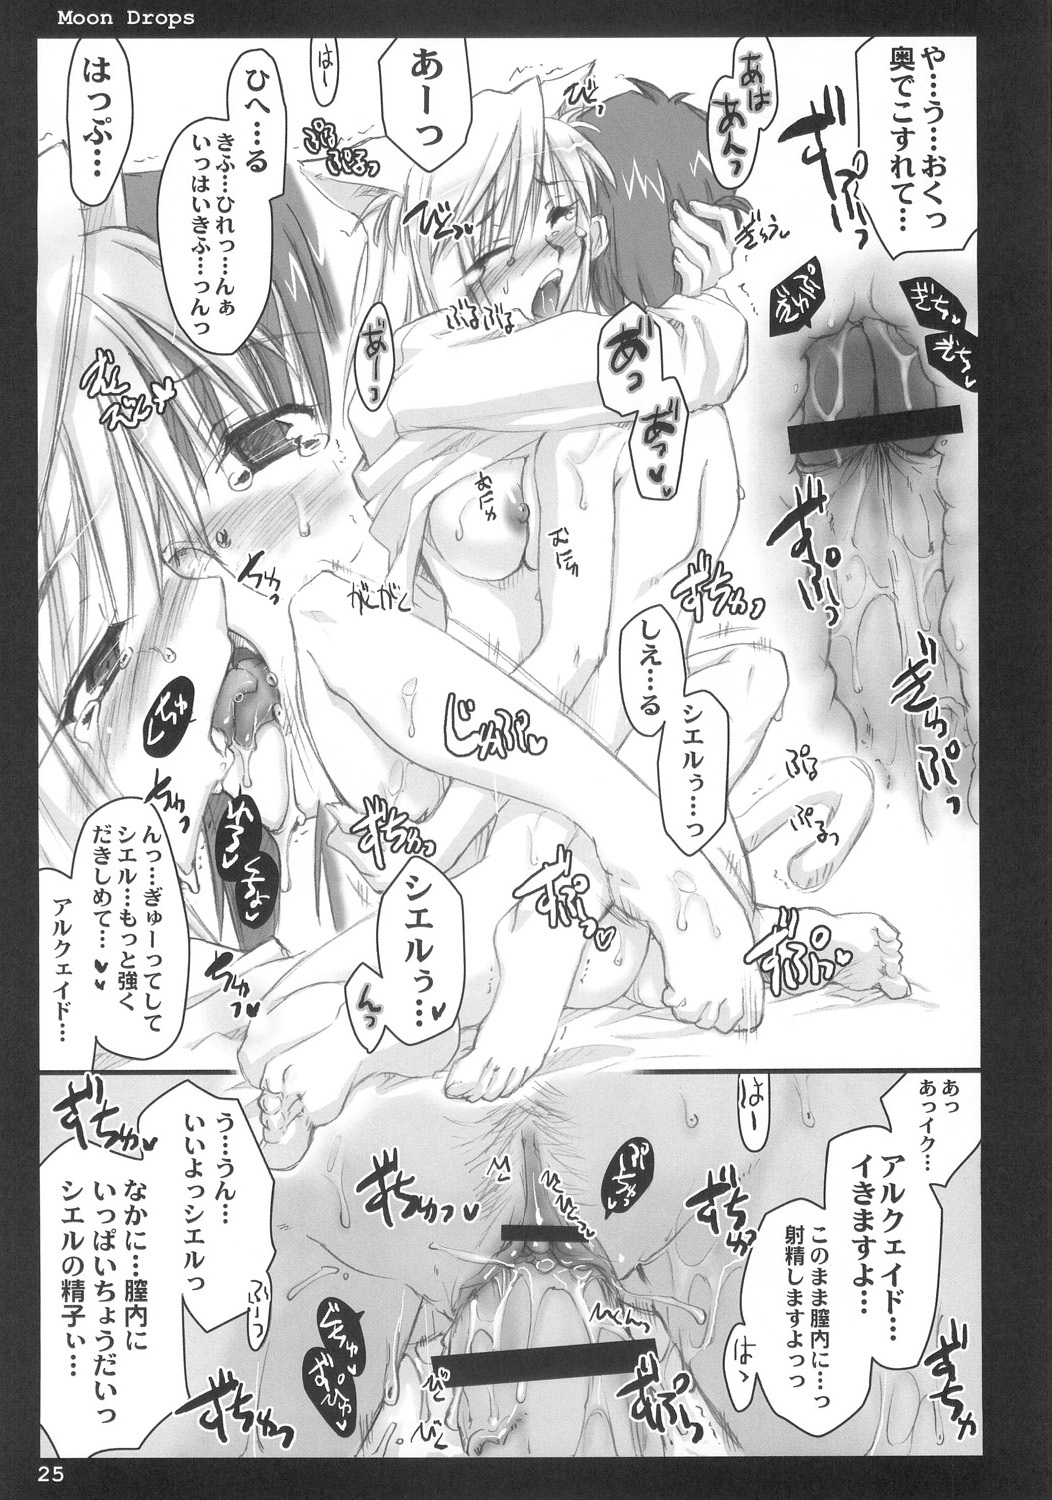 Moon Drops
や…う…おくっ
奥でこすれて…
あはっ
あんっ
あーっ
はー
ひへ…る
きふ…ひれっ…んぁ
いっはいきふ…っんっ
はっぷ…
ぷるっ
ぷるっ
びくっ
ぎゅう
ぶるぶる
あーっ
あっ
あっ♥
ぎちっ
ぎちっ
むにゅ
むにゅ
がくがく
ぎちゅっ
ちゅっ
しえ…る
シエルぅ…っ
じゅぷっ♥
ぷる
ぷるっ
ぎちゅっ
シエルぅ…♥
んっ
んっ…ぎゅーってして
シエル…もっと強く
だきしめて…♥♥
アルクェイド…
25
あっ
あっイク…
アルクェイド…
イきますよ…
このまま膣内に…っ
射精しますよっっ
はー
はっ
う…うん…
いいよっシエルっ
なかに…膣内に
いっぱいちょうだいっ
シエルの精子ぃ…
ふーっ
ぎちゅっ♥